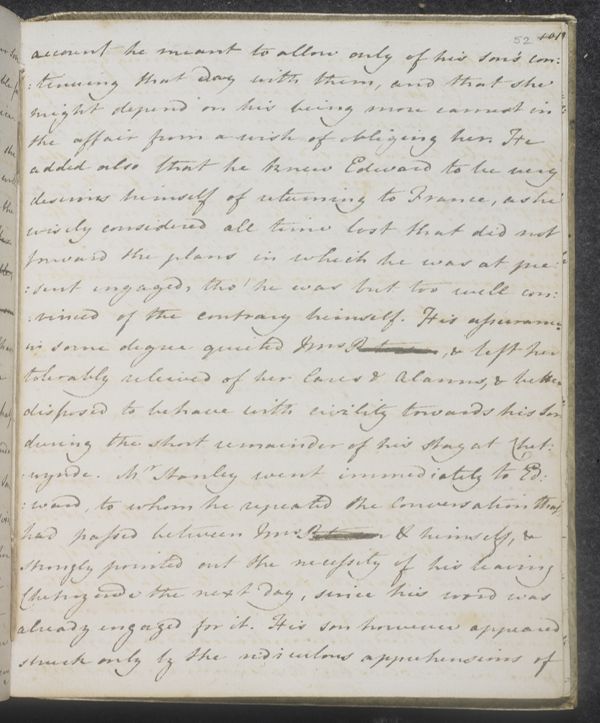 52 101
account he meant to allow only of his son's con:
:tinuing that Day with them, and that she
might depend on his being more earnest in
the affair from a wish of obliging her. He
added also that he knew Edward to be very
desirous himself of returning to France, as he
wisely considered all time lost that did not
forward the plans in which he was at pre:
:sent engaged, tho' he was but too well con:
:vinced of the contrary himself. His assurance
in some degree quieted Mrs P, & left her
tolerably releived of her Cares & Alarms, & better
disposed to behave with civility towards his son
during the short remainder of his stay at Chet:
:wynde. Mr Stanley went immediately to Ed:
:ward, to whom he repeated the Conversation that
had passed between Mrs P & himself, &
strongly pointed out the necessity of his leaving
Chetwynde the next Day, since his word was
already engaged for it. His son however appeared
struck only by the ridiculous apprehensions of